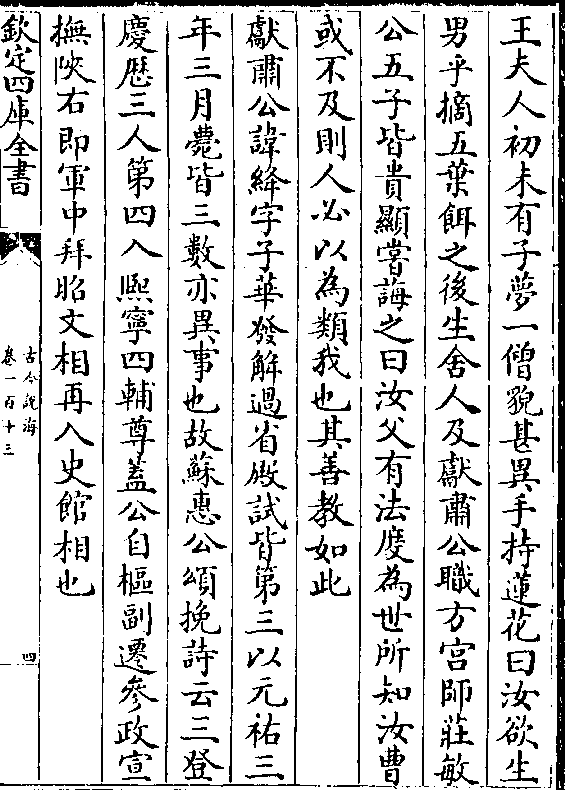 王夫人初未有子夢一僧貌甚異手持蓮花曰汝欲生
男乎摘五葉餌之後生舍人及獻肅公職方宮師莊敏
公五子皆貴顯嘗誨之曰汝父有法度為世所知汝曹
或不及則人必以為類我也其善教如此
獻肅公諱絳字子華發解過省殿試皆第三以元祐三
年三月薨皆三數亦異事也故蘇惠公頌挽詩云三登
慶歴三人第四入熈寧四輔尊蓋公自樞副遷參政宣
撫陜右即軍中拜昭文相再入史館相也
欽定四庫全書
古今說海
卷一百十三
四